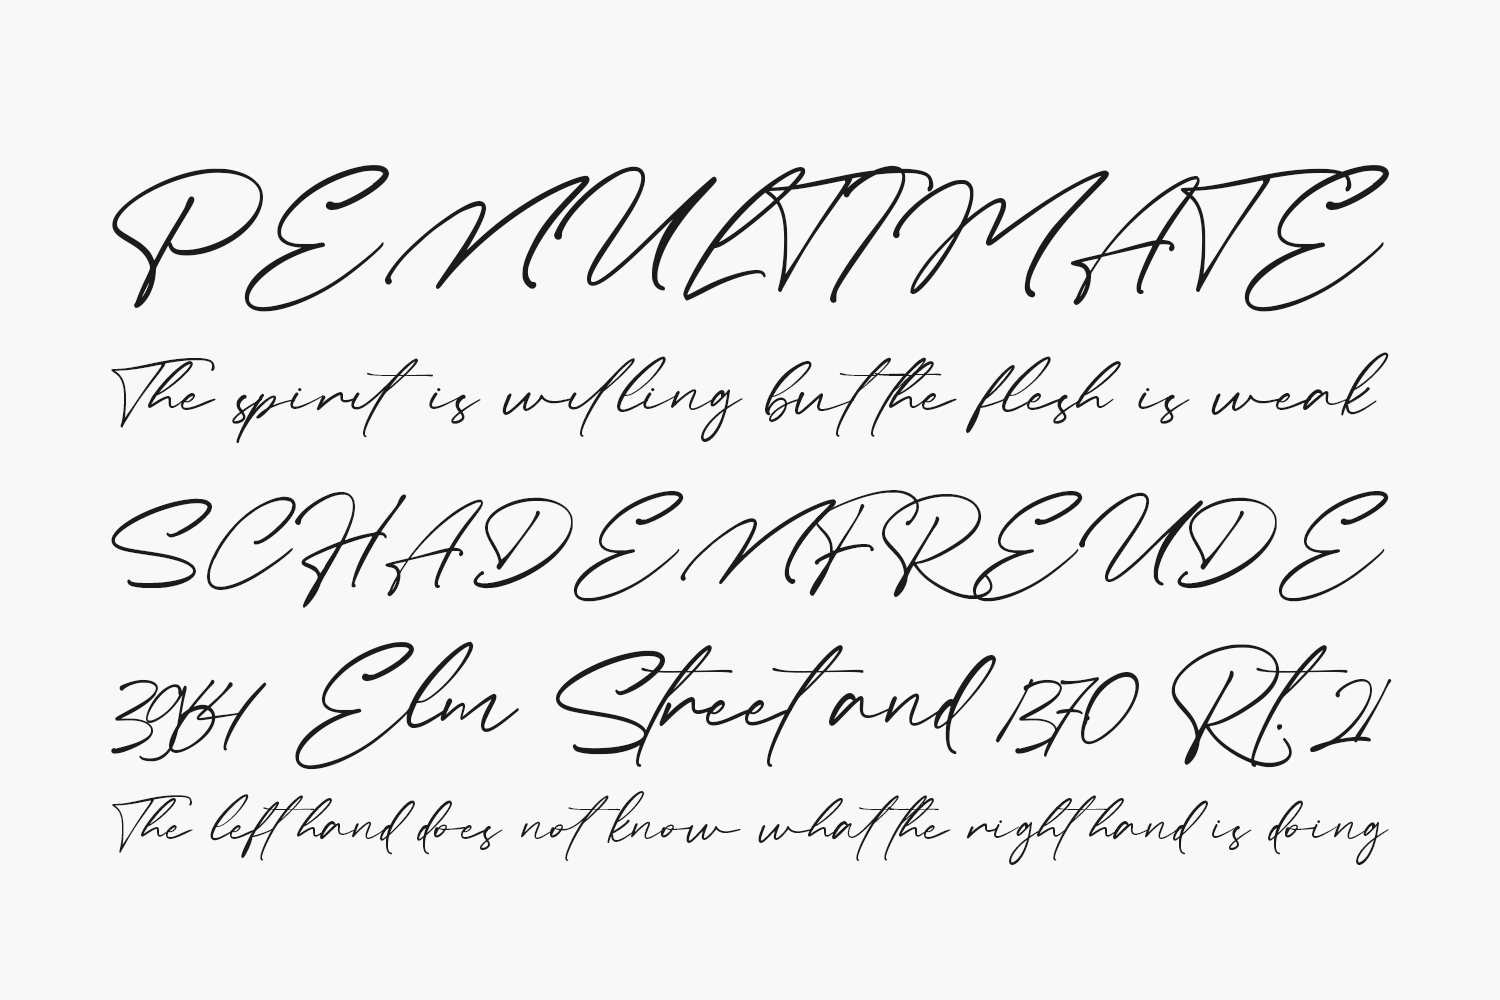 PENULTIMATE
The spirit is willing but the flesh is weak
SCHADENFREUDE
Elm Street and 1370 Rt. 21
The left hand does not know what the right hand is doing